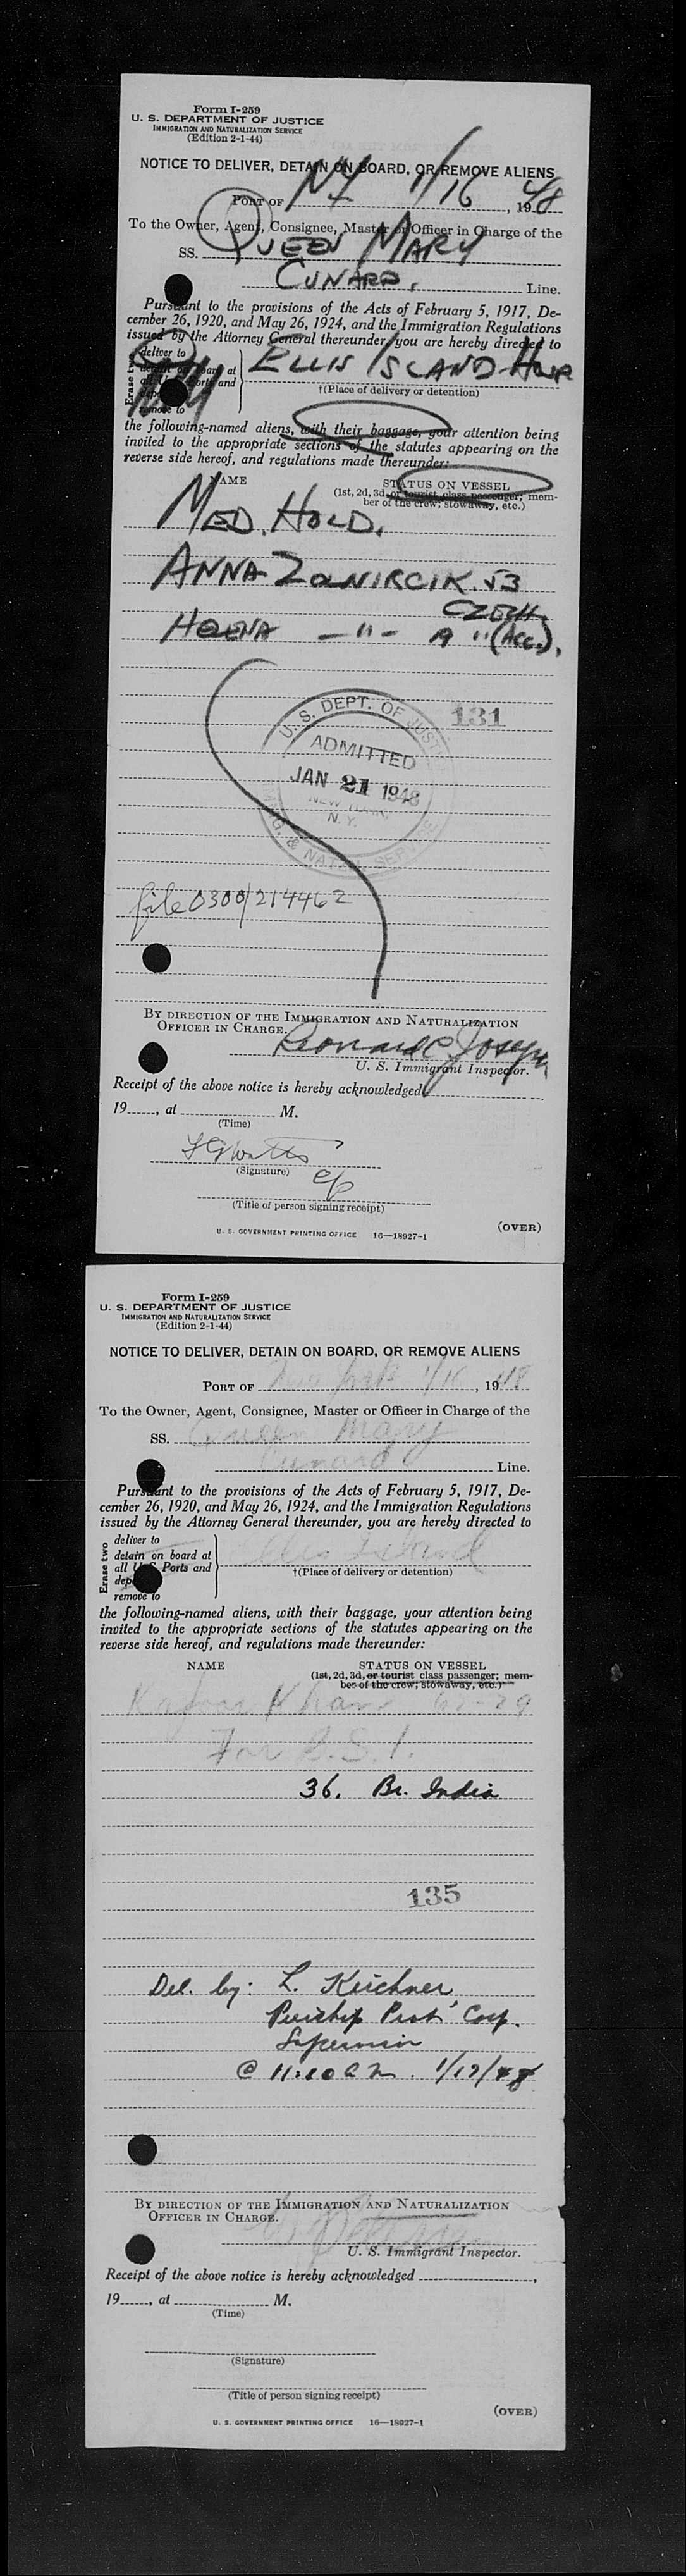 Form I-259
U. S. DEPARTMENT OF JUSTICE
IMMIGRATION AND NATURALIZATION SERVICE
(Edition 2-1-44)
NOTICE TO DELIVER, DETAIN ON BOARD, OR REMOVE ALIENS
PORT OF NY 1/16, 1948
To the Owner, Agent, Consignee, Master or Officer in Charge of the
SS. QUEEN MARY
CUNARD. Line.
Pursuant to the provisions of the Acts of February 5, 1917, De-
cember 26, 1920, and May 26, 1924, and the Immigration Regulations
issued by the Attorney General thereunder, you are hereby directed to
Erase two
deliver to
detain on board at
all U. S. Ports and
remove to
ELLIS ISLAND
†(Place of delivery or detention)
the following-named aliens, with their baggage, your attention being
invited to the appropriate sections of the statutes appearing on the
reverse side hereof, and regulations made thereunder:
NAME STATUS ON VESSEL
(1st, 2d, 3d, or tourist class passenger; mem-
ber of the crew; stowaway, etc.)
MED. HOLD.
ANNA ZOLNIRCIK 53
CZECH
HELENA — " — 19 " (ACC.).
131
U. S. DEPT. OF JUSTICE
ADMITTED
JAN 21 1948
N. Y.
file 0300/214462
BY DIRECTION OF THE IMMIGRATION AND NATURALIZATION
OFFICER IN CHARGE.
Leonard C Joseph
U. S. Immigrant Inspector.
Receipt of the above notice is hereby acknowledged
19____, at ____ M.
(Time)
(Signature)
(Title of person signing receipt)
U. S. GOVERNMENT PRINTING OFFICE 16—18927-1
(OVER)
Form I-259
U. S. DEPARTMENT OF JUSTICE
IMMIGRATION AND NATURALIZATION SERVICE
(Edition 2-1-44)
NOTICE TO DELIVER, DETAIN ON BOARD, OR REMOVE ALIENS
PORT OF New York 1/16, 1948
To the Owner, Agent, Consignee, Master or Officer in Charge of the
SS. Queen Mary
Cunard Line.
Pursuant to the provisions of the Acts of February 5, 1917, De-
cember 26, 1920, and May 26, 1924, and the Immigration Regulations
issued by the Attorney General thereunder, you are hereby directed to
Erase two
deliver to
detain on board at
all U. S. Ports and
remove to
Ellis Island
†(Place of delivery or detention)
the following-named aliens, with their baggage, your attention being
invited to the appropriate sections of the statutes appearing on the
reverse side hereof, and regulations made thereunder:
NAME STATUS ON VESSEL
(1st, 2d, 3d, or tourist class passenger; mem-
ber of the crew; stowaway, etc.)
Khan
For B.S.I.
36. Br. India
135
Del. by: L. Kirchner
Corp.
Supervisor
@ 11:10 a m. 1/17/48
BY DIRECTION OF THE IMMIGRATION AND NATURALIZATION
OFFICER IN CHARGE.
U. S. Immigrant Inspector.
Receipt of the above notice is hereby acknowledged ____,
19____, at ____ M.
(Time)
(Signature)
(Title of person signing receipt)
(OVER)
U. S. GOVERNMENT PRINTING OFFICE 16—18927-1